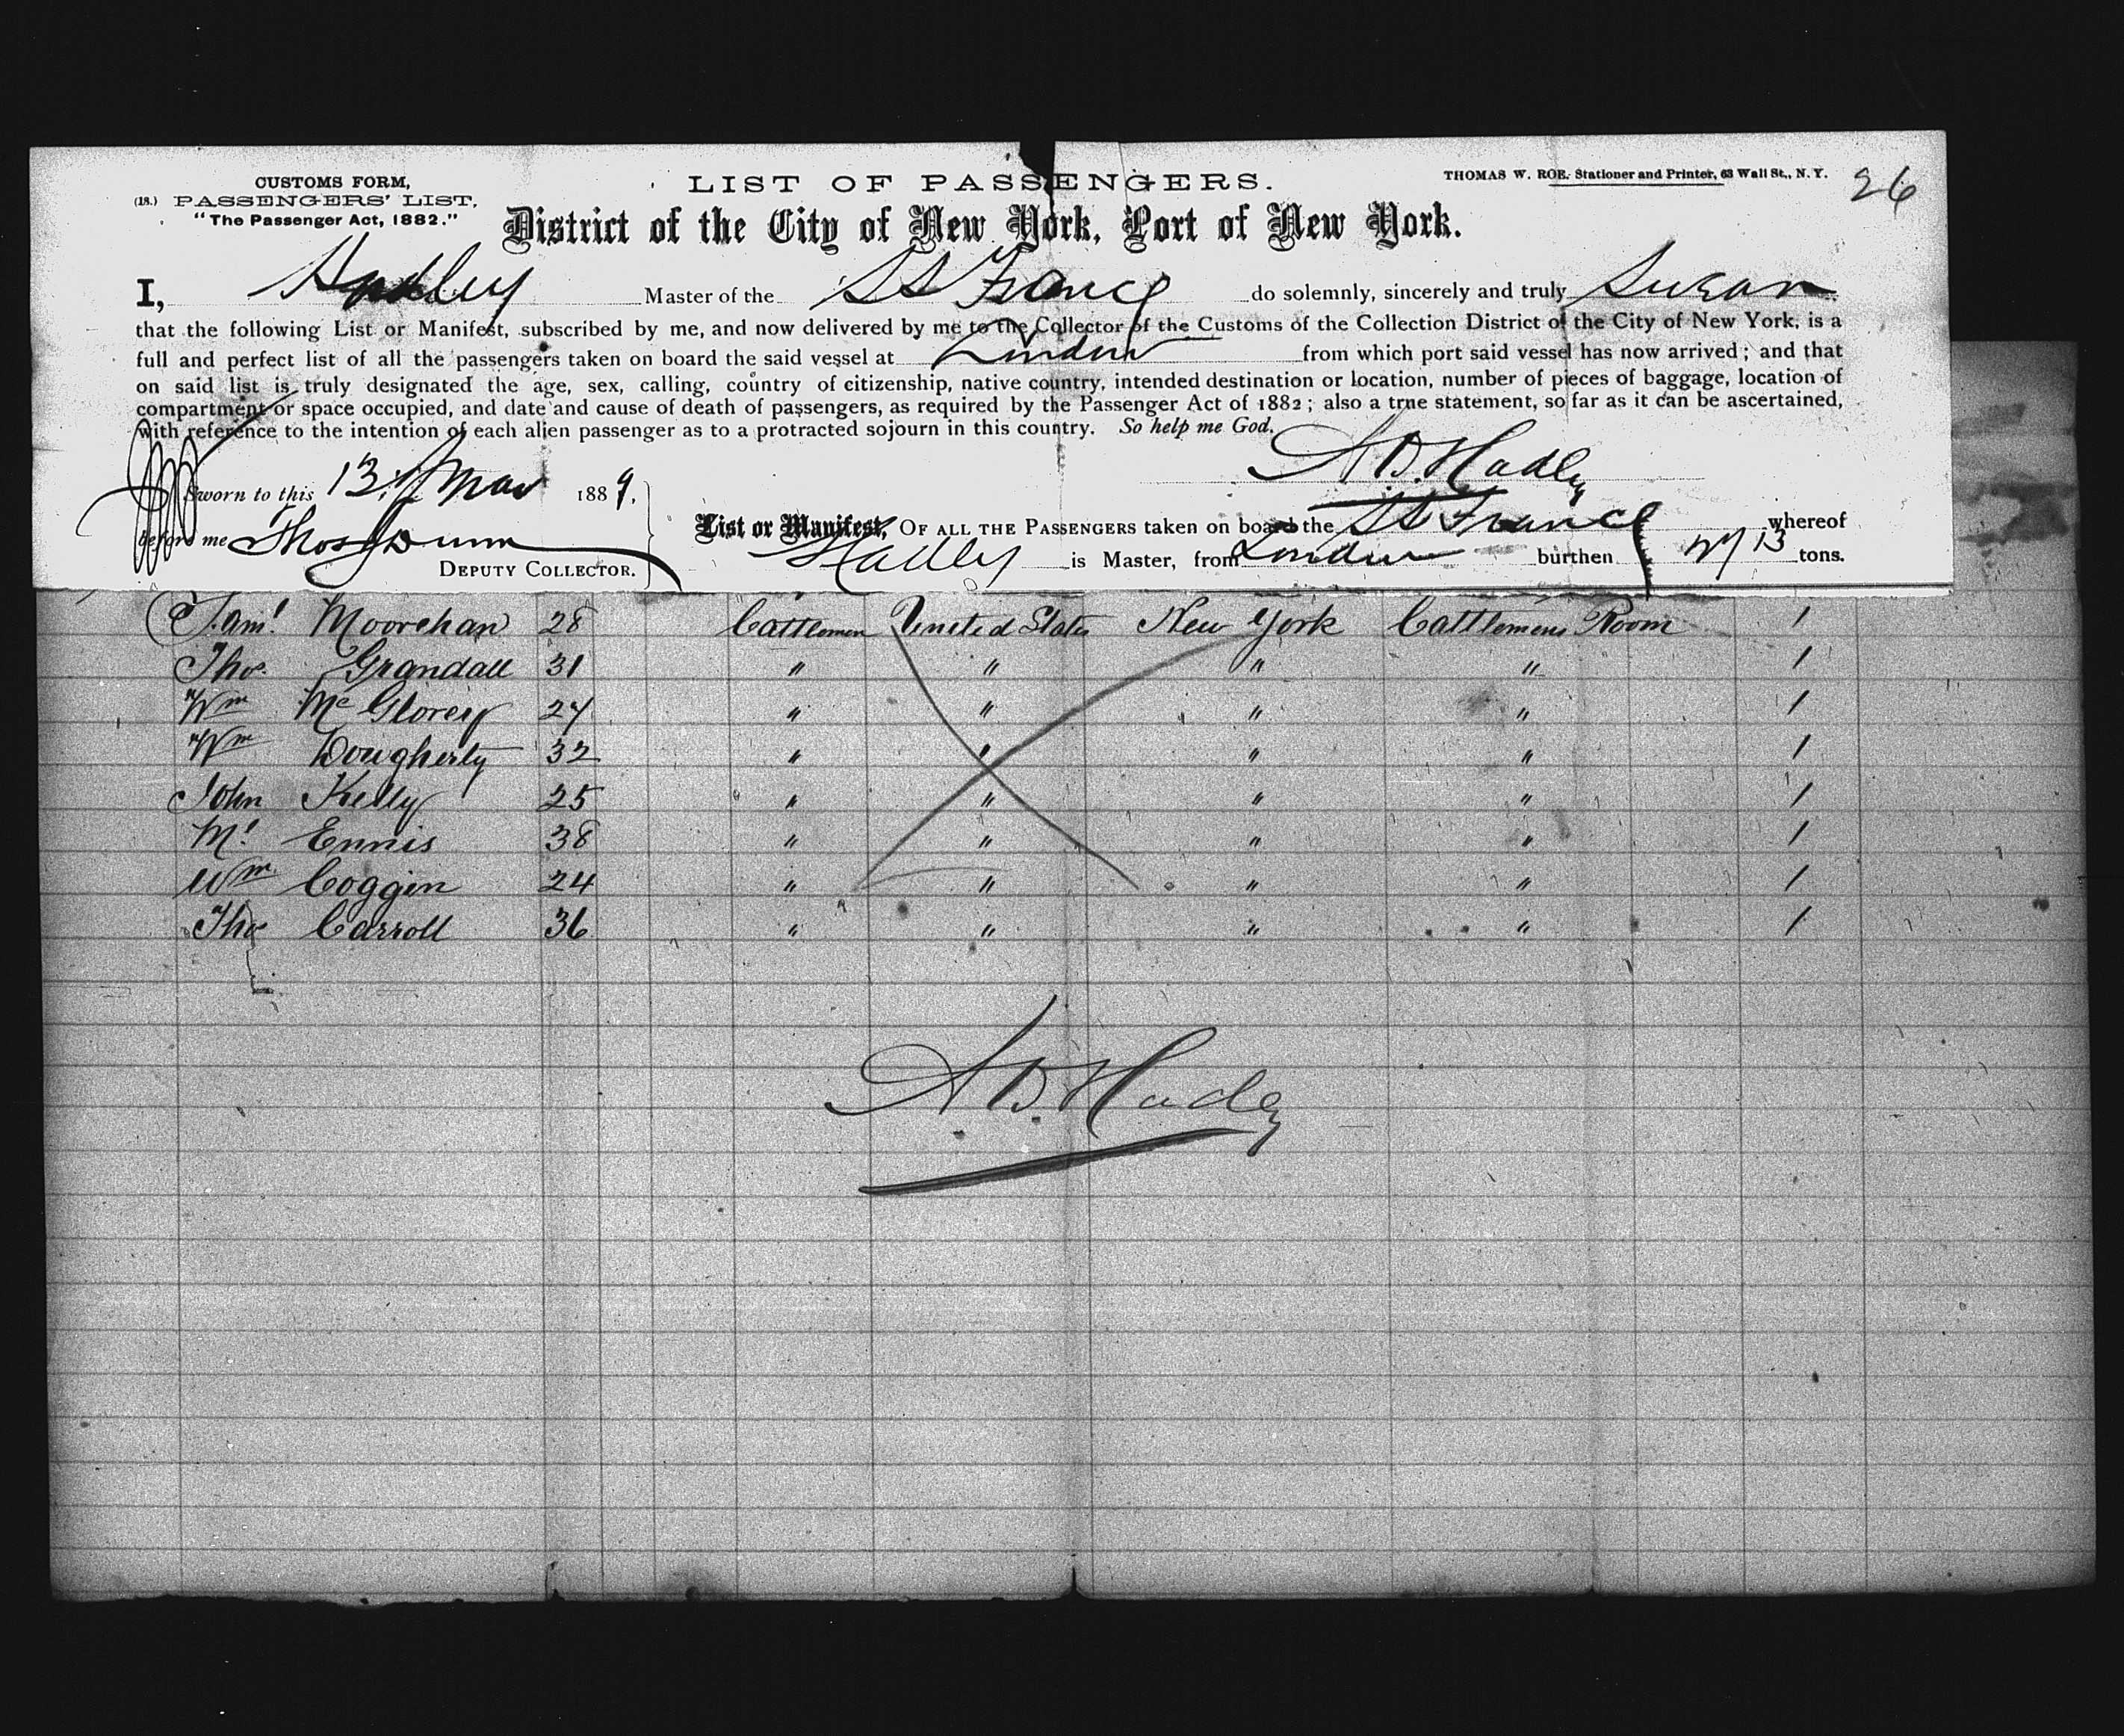 CUSTOMS FORM,
(18.) PASSENGERS' LIST,
"The Passenger Act, 1882."
LIST OF PASSENGERS.
THOMAS W. ROE. Stationer and Printer, 63 Wall St., N. Y.
26
District of the City of New York, Port of New York.
I, Hadley Master of the SS France do solemnly, sincerely and truly Swear
that the following List or Manifest, subscribed by me, and now delivered by me to the Collector of the Customs of the Collection District of the City of New York, is a
full and perfect list of all the passengers taken on board the said vessel at London from which port said vessel has now arrived; and that
on said list is truly designated the age, sex, calling, country of citizenship, native country, intended destination or location, number of pieces of baggage, location of
compartment or space occupied, and date and cause of death of passengers, as required by the Passenger Act of 1882; also a true statement, so far as it can be ascertained,
with reference to the intention of each alien passenger as to a protracted sojourn in this country. So help me God.
A D. Hadley
Sworn to this 13 Mar 1889,
before me Thos Dunn
DEPUTY COLLECTOR.
List or Manifest, OF ALL THE PASSENGERS taken on board the SS France whereof
Hadley is Master, from London burthen tons.
Saml Moorehan 28 Cattlemen United States New York Cattlemens Room 1
Thos. Grandall 31 " " " " 1
Wm McGlorey 27 " " " " 1
Wm Dougherty 32 " " " " 1
John Kelly 25 " " " " 1
Ml Ennis 38 " " " " 1
Wm Coggin 24 " " " " 1
Thos Carroll 36 " " " " 1
A D. Hadley